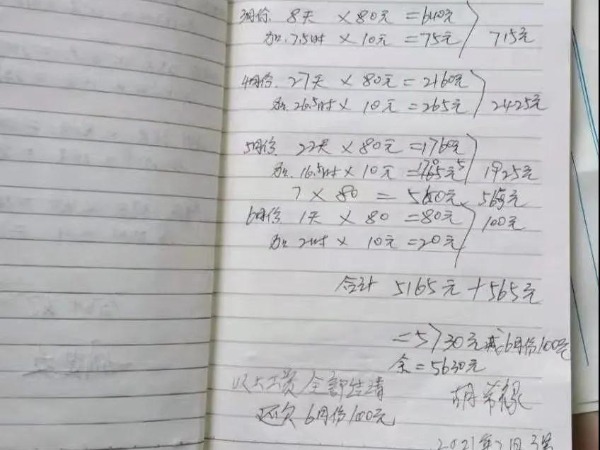 3月份 8天 × 80元 = 640元
加 7.5时 × 10元 = 75元 715元
4月份 27天 × 80元 = 2160元
加 26.5时 × 10元 = 265元 2425元
5月份 22天 × 80元 = 1760元
加 16.5时 × 10元 = 165元 1925元
7 × 80 = 560元 565元
6月份 1天 × 80 = 80元 100元
加 2时 × 10元 = 20元
合计 5165元 + 565元
= 5730元 减6月份100元
余 = 5630元
以上工资全部结清
还欠6月份100元 胡
2021年 月3号